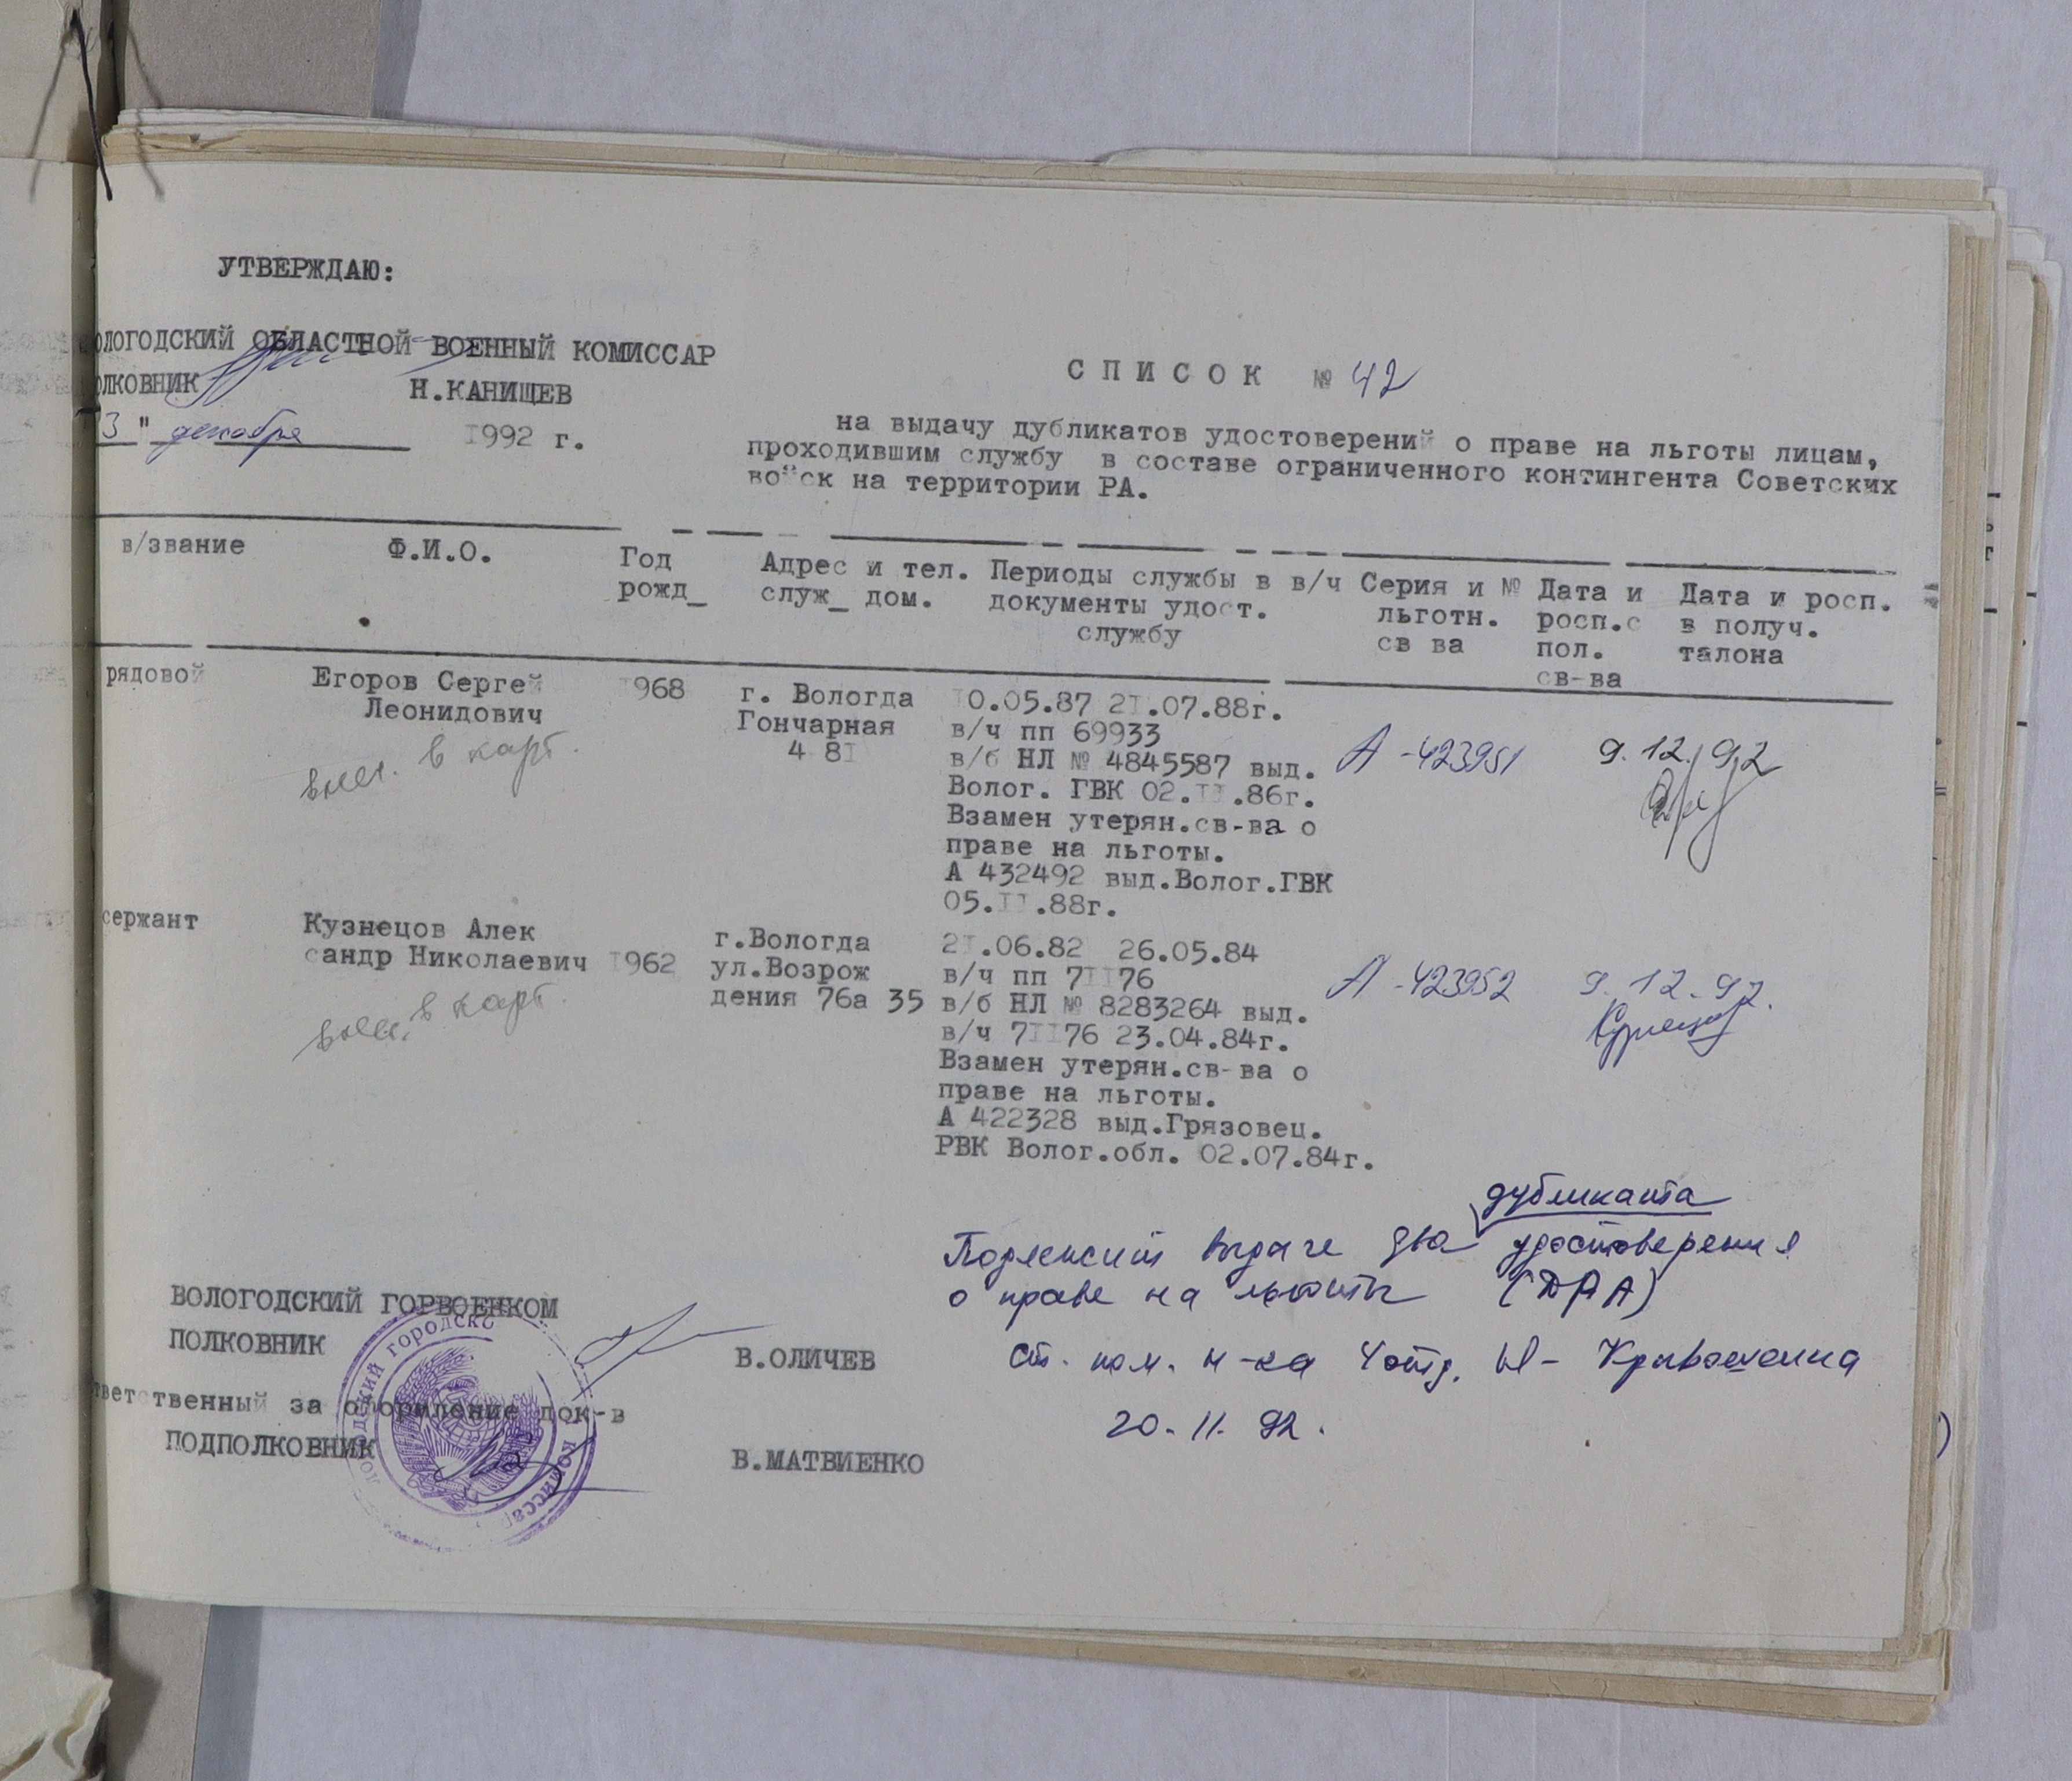 УТВЕРЖДАЮ:
ОЛОГОДСКИЙ ОБЛАСТНОЙ ВОЕННЫЙ КОМИССАР
ОЛКОВНИК Н.КАНИЩЕВ
3 " декабря 1992 г.
С П И С О К № 42
на выдачу дубликатов удостоверений о праве на льготы лицам,
проходившим службу в составе ограниченного контингента Советских
войск на территории РА.
в/звание Ф.И.О. Год рожд_ Адрес и тел. служ_ дом. Периоды службы в в/ч документы удост. службу Серия и № льготн. св ва Дата и росп.с пол. св-ва Дата и росп. в получ. талона
рядовой Егоров Сергей 1968 г. Вологда 10.05.87 21.07.88г.
Леонидович Гончарная в/ч пп 69933
4 81 в/б НЛ № 4845587 выд. А -423951 9.12.92
в карт.
Волог. ГВК 02.II.86г.
Взамен утерян.св-ва о
праве на льготы.
А 432492 выд.Волог.ГВК
05.II.88г.
сержант Кузнецов Алек г.Вологда 21.06.82 26.05.84
сандр Николаевич 1962 ул.Возрож в/ч пп 7II76
дения 76а 35 в/б НЛ № 8283264 выд. А -423952 9.12.92.
в карт.
в/ч 7II76 23.04.84г.
Взамен утерян.св-ва о
праве на льготы.
А 422328 выд.Грязовец.
РВК Волог.обл. 02.07.84г.
дубликата
Подлежит выдаче два удостоверения
о праве на льготы (ДРА)
ст. пом. н-ка 4 отд.
20. 11. 92.
ВОЛОГОДСКИЙ ГОРВОЕНКОМ
ПОЛКОВНИК В.ОЛИЧЕВ
тветственный за оформление док-в
ПОДПОЛКОВНИК В.МАТВИЕНКО